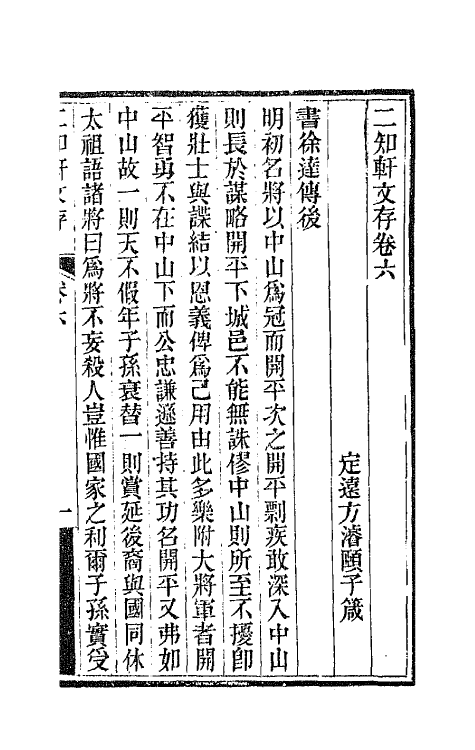 二知軒文存卷六
定遠方濬頤子箴
書徐達傳後
明初名將以中山爲冠而開平次之開平剽疾敢深入中山
則長於謀略開平下城邑不能無誅僇中山則所至不擾卽
獲壯士與諜結以恩義俾爲己用由此多樂附大將軍者開
平智勇不在中山下而公忠謙遜善持其功名開平又弗如
中山故一則天不假年子孫衰替一則賞延後裔與國同休
太祖語諸將曰爲將不妄殺人豈惟國家之利爾子孫實受
二知軒文存
卷六
一